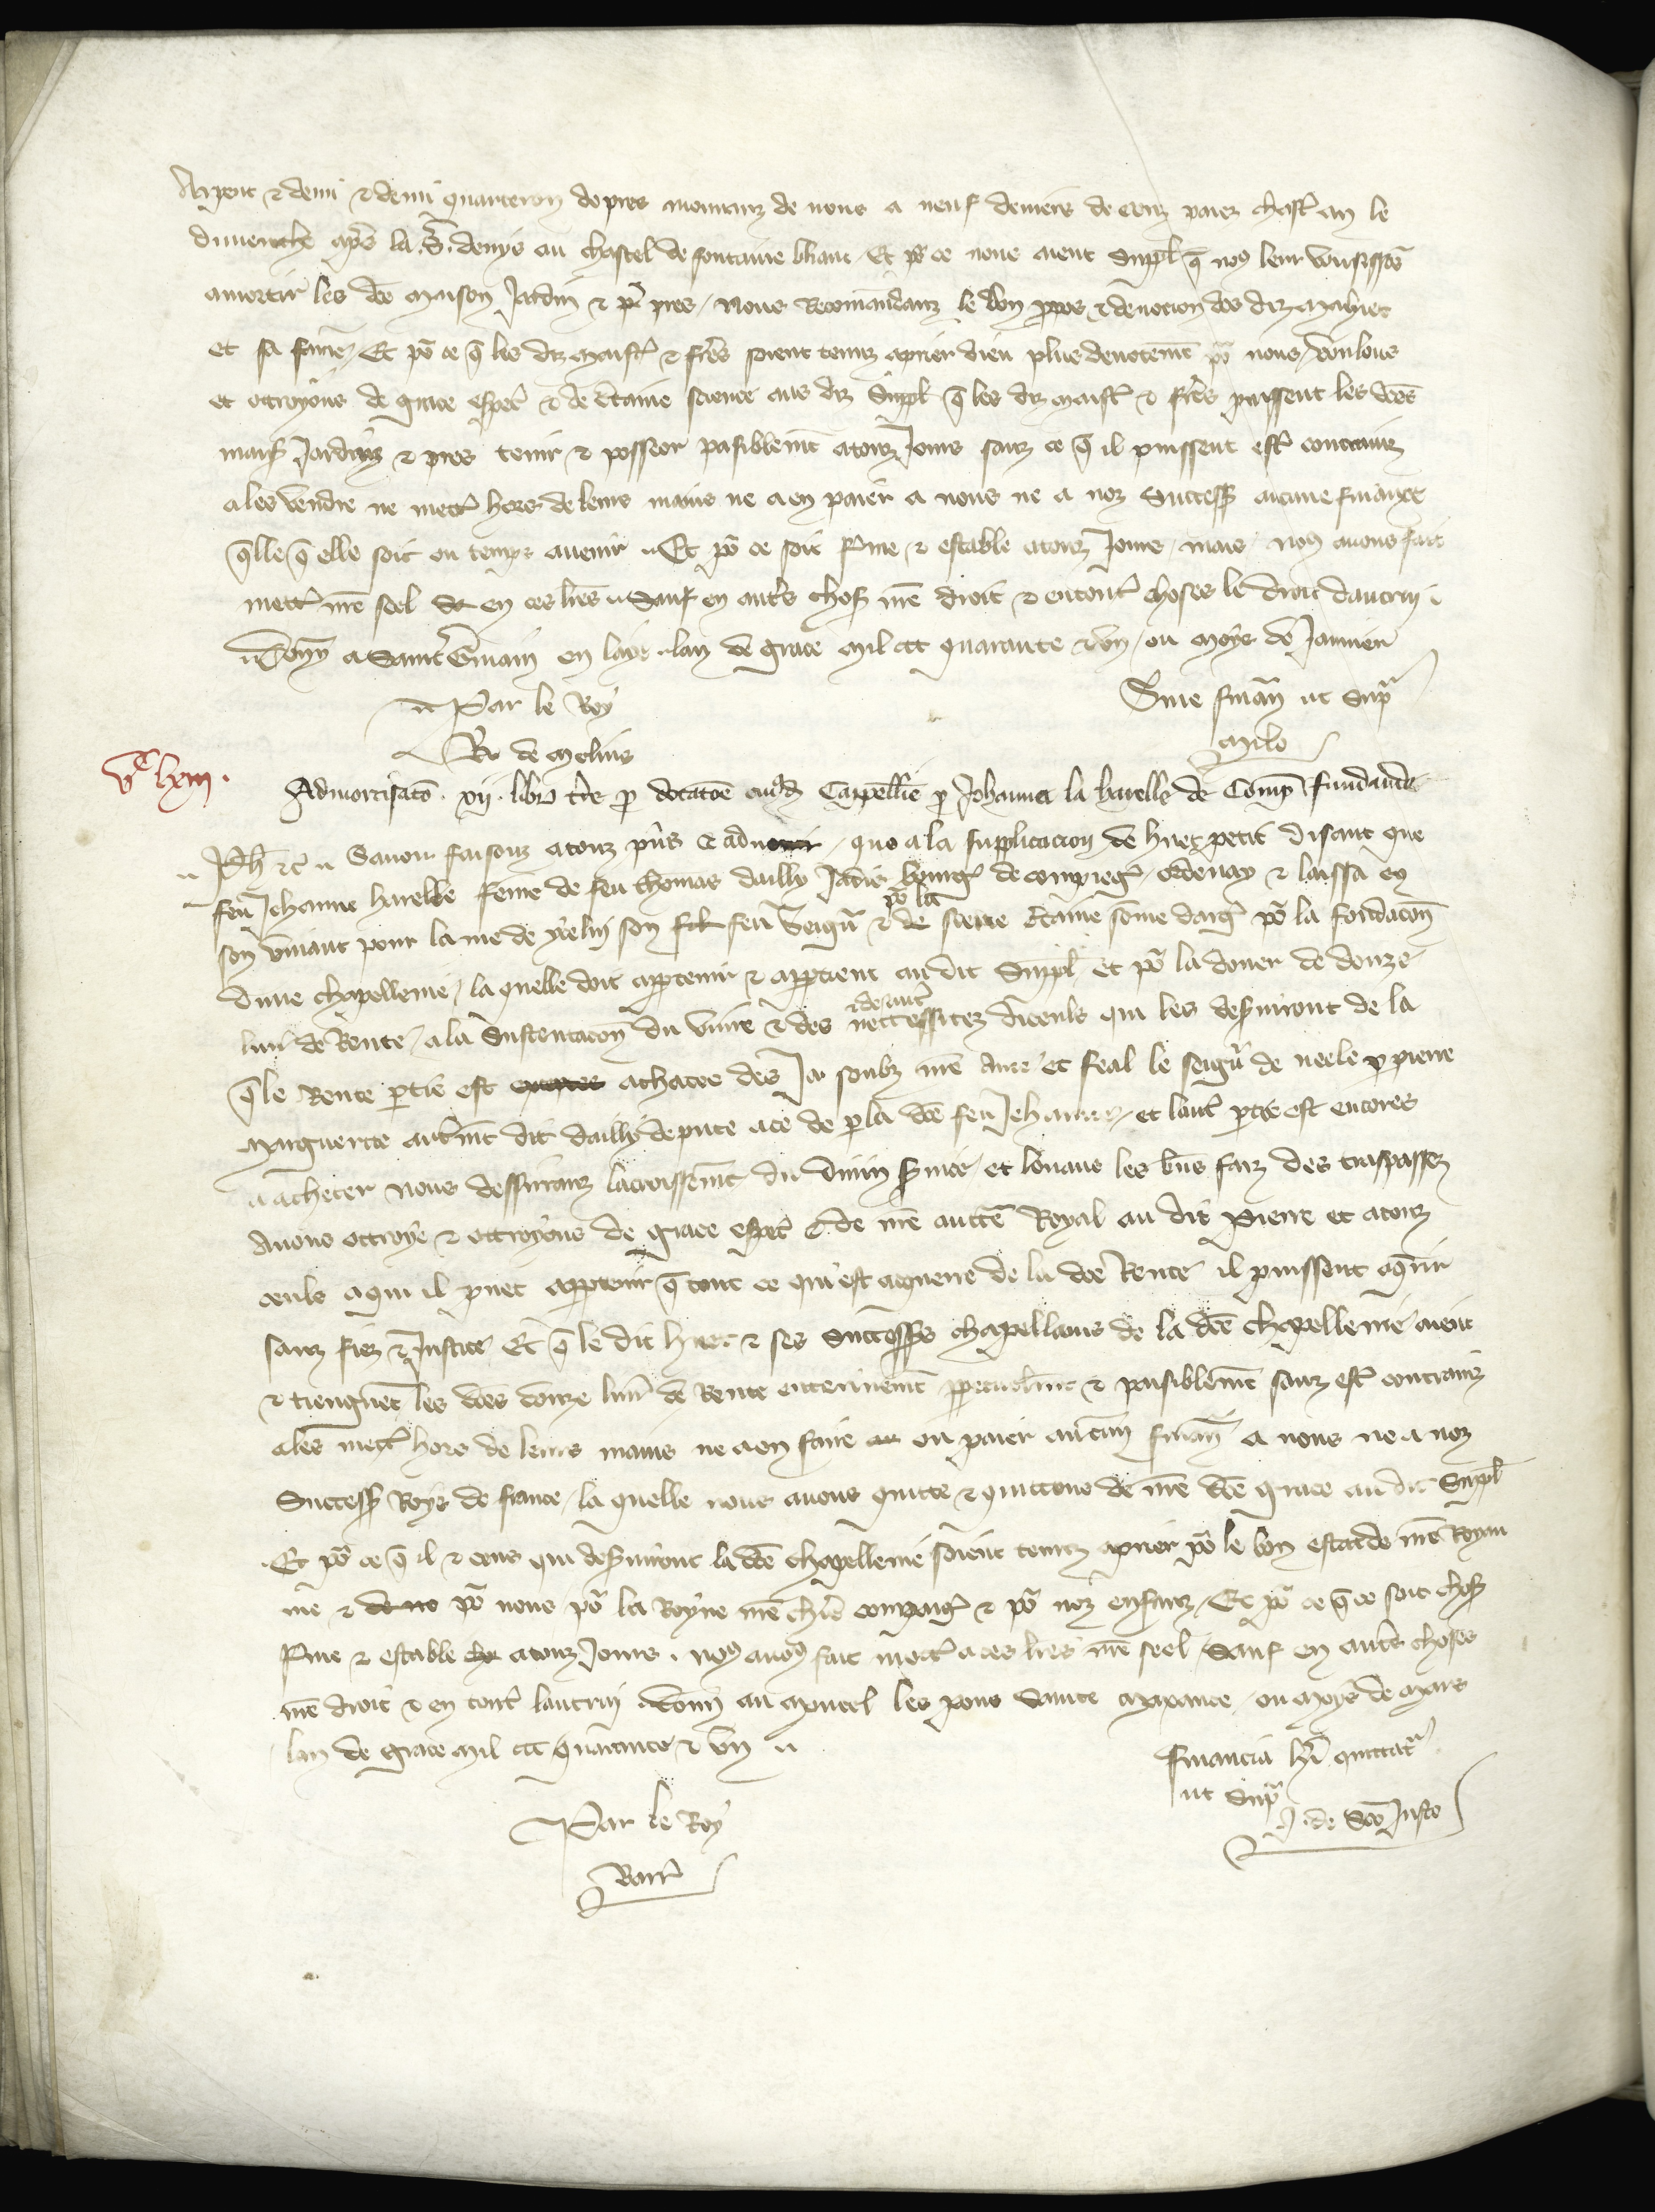 Arpent & demi & demi quarteron de pres mouvanz de nous a neuf deniers de cens paiez chast an le
dimenche apres la S. Denys au chastel de fontaine bliaut Et po ce nous aient suppl q no9 leur vousissos
amortir les des maison Jardin & pres / Nous Recomandanz le bon ppos & devocion des diz
et sa fame / Et po ce q les diz maist & freres soient tenuz a prier dieu plus devotemt po nous / voulons
et ottroyons de grace especl & de ctaine science aus diz suppl q les diz maist & freres puissent les des
mais Jardins & pres tenir & posseoir pasiblemt a touz Jours sanz ce q il puissent est contrainz
a les vendre ne mett hors de leurs mains ne a en paier a nous ne a noz success aucune finance
qlle q elle soit ou temps avenir Et po ce soit ferme & estable a touz Jours mais no9 avons fait
mett nre seel en ces lres Sauf en autes chos nre droit & en tout choses le droit dautrui
Donn a Saint Gmain en laye lan de grace mil ccc quarante & un / ou moys de Janvier
Par le Roy
Sine finan ut supra
R de Molins
Milo
vᶜ lxiii.
Admortisato xii libr tre p dotatoe cuiusd Capellie p Johanna la harelle de Comp fundande
Ph &c Savoir faisons a touz pns & advenir / que a la supplicacion de huet petit disant que
feu Jehanne harelle feme de feu thomas dailly Jadis bourg de compieg ordenay & laissa en
son vivant pour lame de yvelin son filz feu Seigu & de sienne ctaine some darg po la fondacon
po la
dune chapellenie / la quelle doit apptenir & apptient au dit suppl et po la doner de douze
livr de Rente / a la sustentacon du vivre & des neccessitez diceuls qui les desviront de la
& de aut
qle Rente ptie est achatee des Ja soubz nre ame et feal le seigu de neele p pierre
Muguerte autmt dit dailly depute a ce de p la de feu Jehanne / et laut ptie est encores
a acheter nous desiranz lacroissemt du divin svice / et louans les bns faiz des trespassez
Avons ottroye & ottroyons de grace espec & de nre autte Royal au dit Pierre et a touz
ceuls a qui il puet apptenir q tout ce qui est aquerre de la de Rente il puissent aqrir
sanz fiez & Justice Et q le dit huet & ses successrs chapellains de la de chapellenie aient
& tiengnet les des douze livr de Rente enterinemt ppetuelmt & paisiblemt sanz est contrainz
a les mett hors de leurs mains ne a en faire ou paier aucun finan a nous ne a noz
Success Roys de france / la quelle nous avons quitte & quittons de nre de grace au dit Suppl
Et po ce q il & ceus qui desviront la de chapellenie soient tenuz a prier po le bon estat de nre Royau
me & po nous po la Royne nre chiere compaig & po noz enfanz / Et po ce q ce soit chos
ferme & estable a touz Jours no9 avo9 fait mett a ces lres nre seel Sauf en autes choses
nre droit & en tout lautrui Donn au Moncel les pons Sainte Maxance / ou moys de Mars
lan de grace mil ccc quarante & un
Financia hi quittat
ut supra
J. de Sco Justo
Par le Roy
Barr